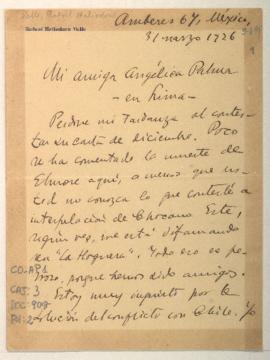 Valle, Rafael Heliodoro
Rafael Heliodoro Valle
Amberes 67, México,
31 marzo 1926
Mi amiga Angélica Palma
- en Lima -
Perdone mi tardanza al contes-
tar su carta de diciembre. Poco
se ha comentado la muerte de
Elmore aquí, a menos que us-
ted no conozca lo que contesté a
interpelación de Chocano. Este,
según veo, me está difamando
en "La Hoguera". Todo eso es pe-
noso, porque hemos sido amigos.
Estoy muy inquieto por la
solución del conflicto con Chile. Yo
CO-AP1
CAJ: 3
DOC 908
PH: 2